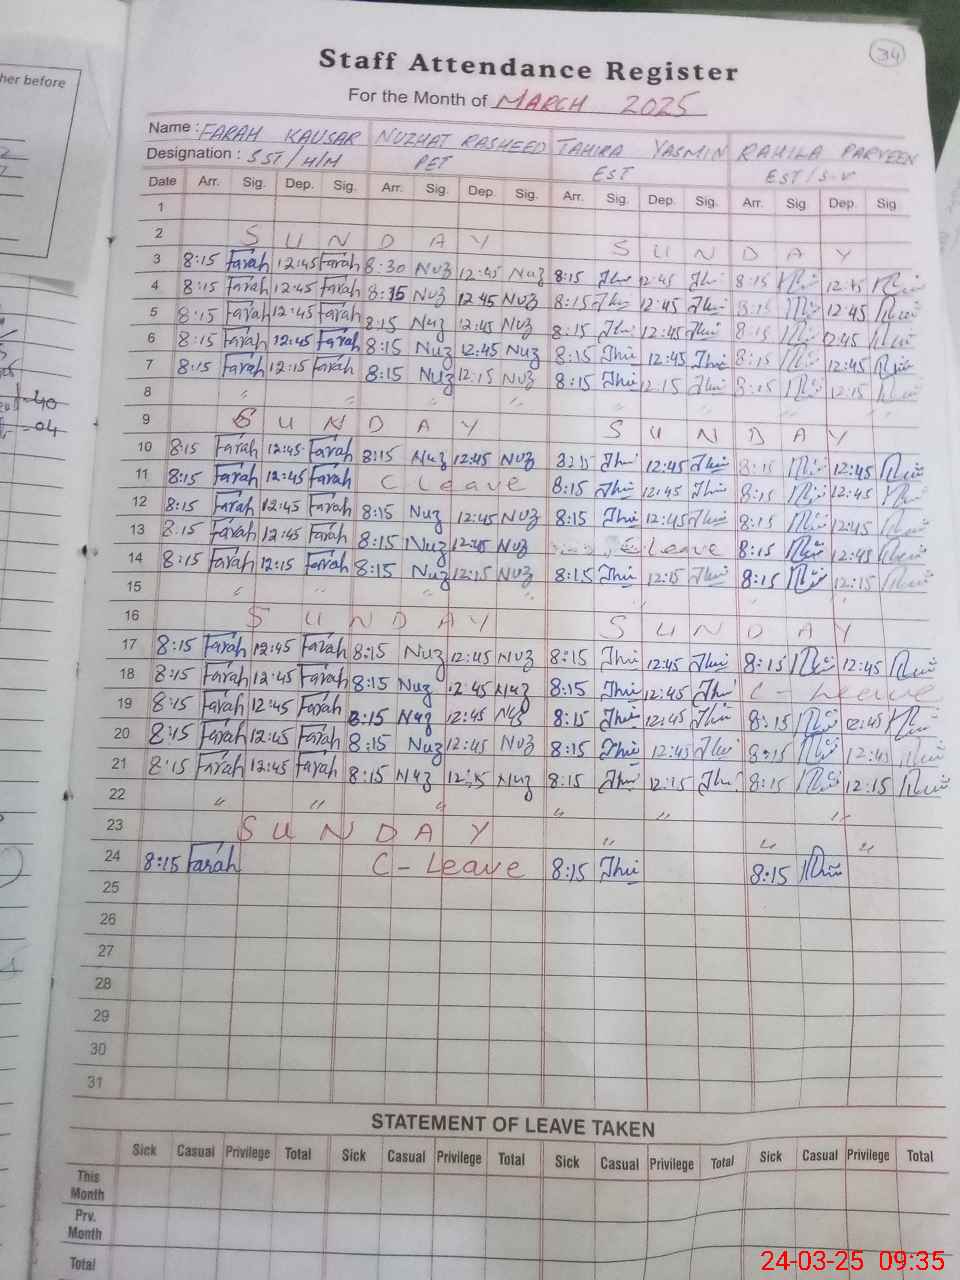 her before
34
Staff Attendance Register
For the Month of MARCH 2025
Name : FARAH KAUSAR NUZHAT RASHEED TAHIRA YASMIN RAHILA PARVEEN
Designation : SST/H/M PET EST EST/S.V
Date Arr. Sig. Dep. Sig. Arr. Sig. Dep. Sig. Arr. Sig. Dep. Sig. Arr. Sig Dep. Sig
1
2 S U N D A Y S U N D A Y
3 8:15 Farah 12:45 Farah 8:30 Nuz 12:45 Nuz 8:15 12:45 8:15 12:45
4 8:15 Farah 12:45 Farah 8:15 Nuz 12:45 Nuz 8:15 12:45 8:15 12:45
5 8:15 Farah 12:45 Farah 8:15 Nuz 12:45 Nuz 8:15 12:45 8:15 12:45
6 8:15 Farah 12:45 Farah 8:15 Nuz 12:45 Nuz 8:15 12:45 8:15 12:45
7 8:15 Farah 12:15 Farah 8:15 Nuz 12:15 Nuz 8:15 12:15 8:15 12:15
8 " " " " " " " "
9 S U N D A Y S U N D A Y
10 8:15 Farah 12:45 Farah 8:15 Nuz 12:45 Nuz 12:45 8:15 12:45
11 8:15 Farah 12:45 Farah C Leave 8:15 12:45 8:15 12:45
12 8:15 Farah 12:45 Farah 8:15 Nuz 12:45 Nuz 8:15 12:45 8:15 12:45
13 8:15 Farah 12:45 Farah 8:15 Nuz 12:45 Nuz Leave 8:15 12:45
14 8:15 Farah 12:15 Farah 8:15 Nuz 12:15 Nuz 8:15 12:15 8:15 12:15
15 " " " " " " " "
16 S U N D A Y S U N D A Y
17 8:15 Farah 12:45 Farah 8:15 Nuz 12:45 Nuz 8:15 12:45 8:15 12:45
18 8:15 Farah 12:45 Farah 8:15 Nuz 12:45 Nuz 8:15 12:45 C - Leave
19 8:15 Farah 12:45 Farah 8:15 Nuz 12:45 Nuz 8:15 12:45 8:15 12:45
20 8:15 Farah 12:45 Farah 8:15 Nuz 12:45 Nuz 8:15 12:45 8:15 12:45
21 8:15 Farah 12:45 Farah 8:15 Nuz Nuz 8:15 12:15 8:15 12:15
22 " " " " " "
23 S U N D A Y " " "
24 8:15 Farah C - Leave 8:15 8:15
25
26
27
28
29
30
31
STATEMENT OF LEAVE TAKEN
Sick Casual Privilege Total Sick Casual Privilege Total Sick Casual Privilege Total Sick Casual Privilege Total
This
Month
Prv.
Month
Total
24-03-25 09:35